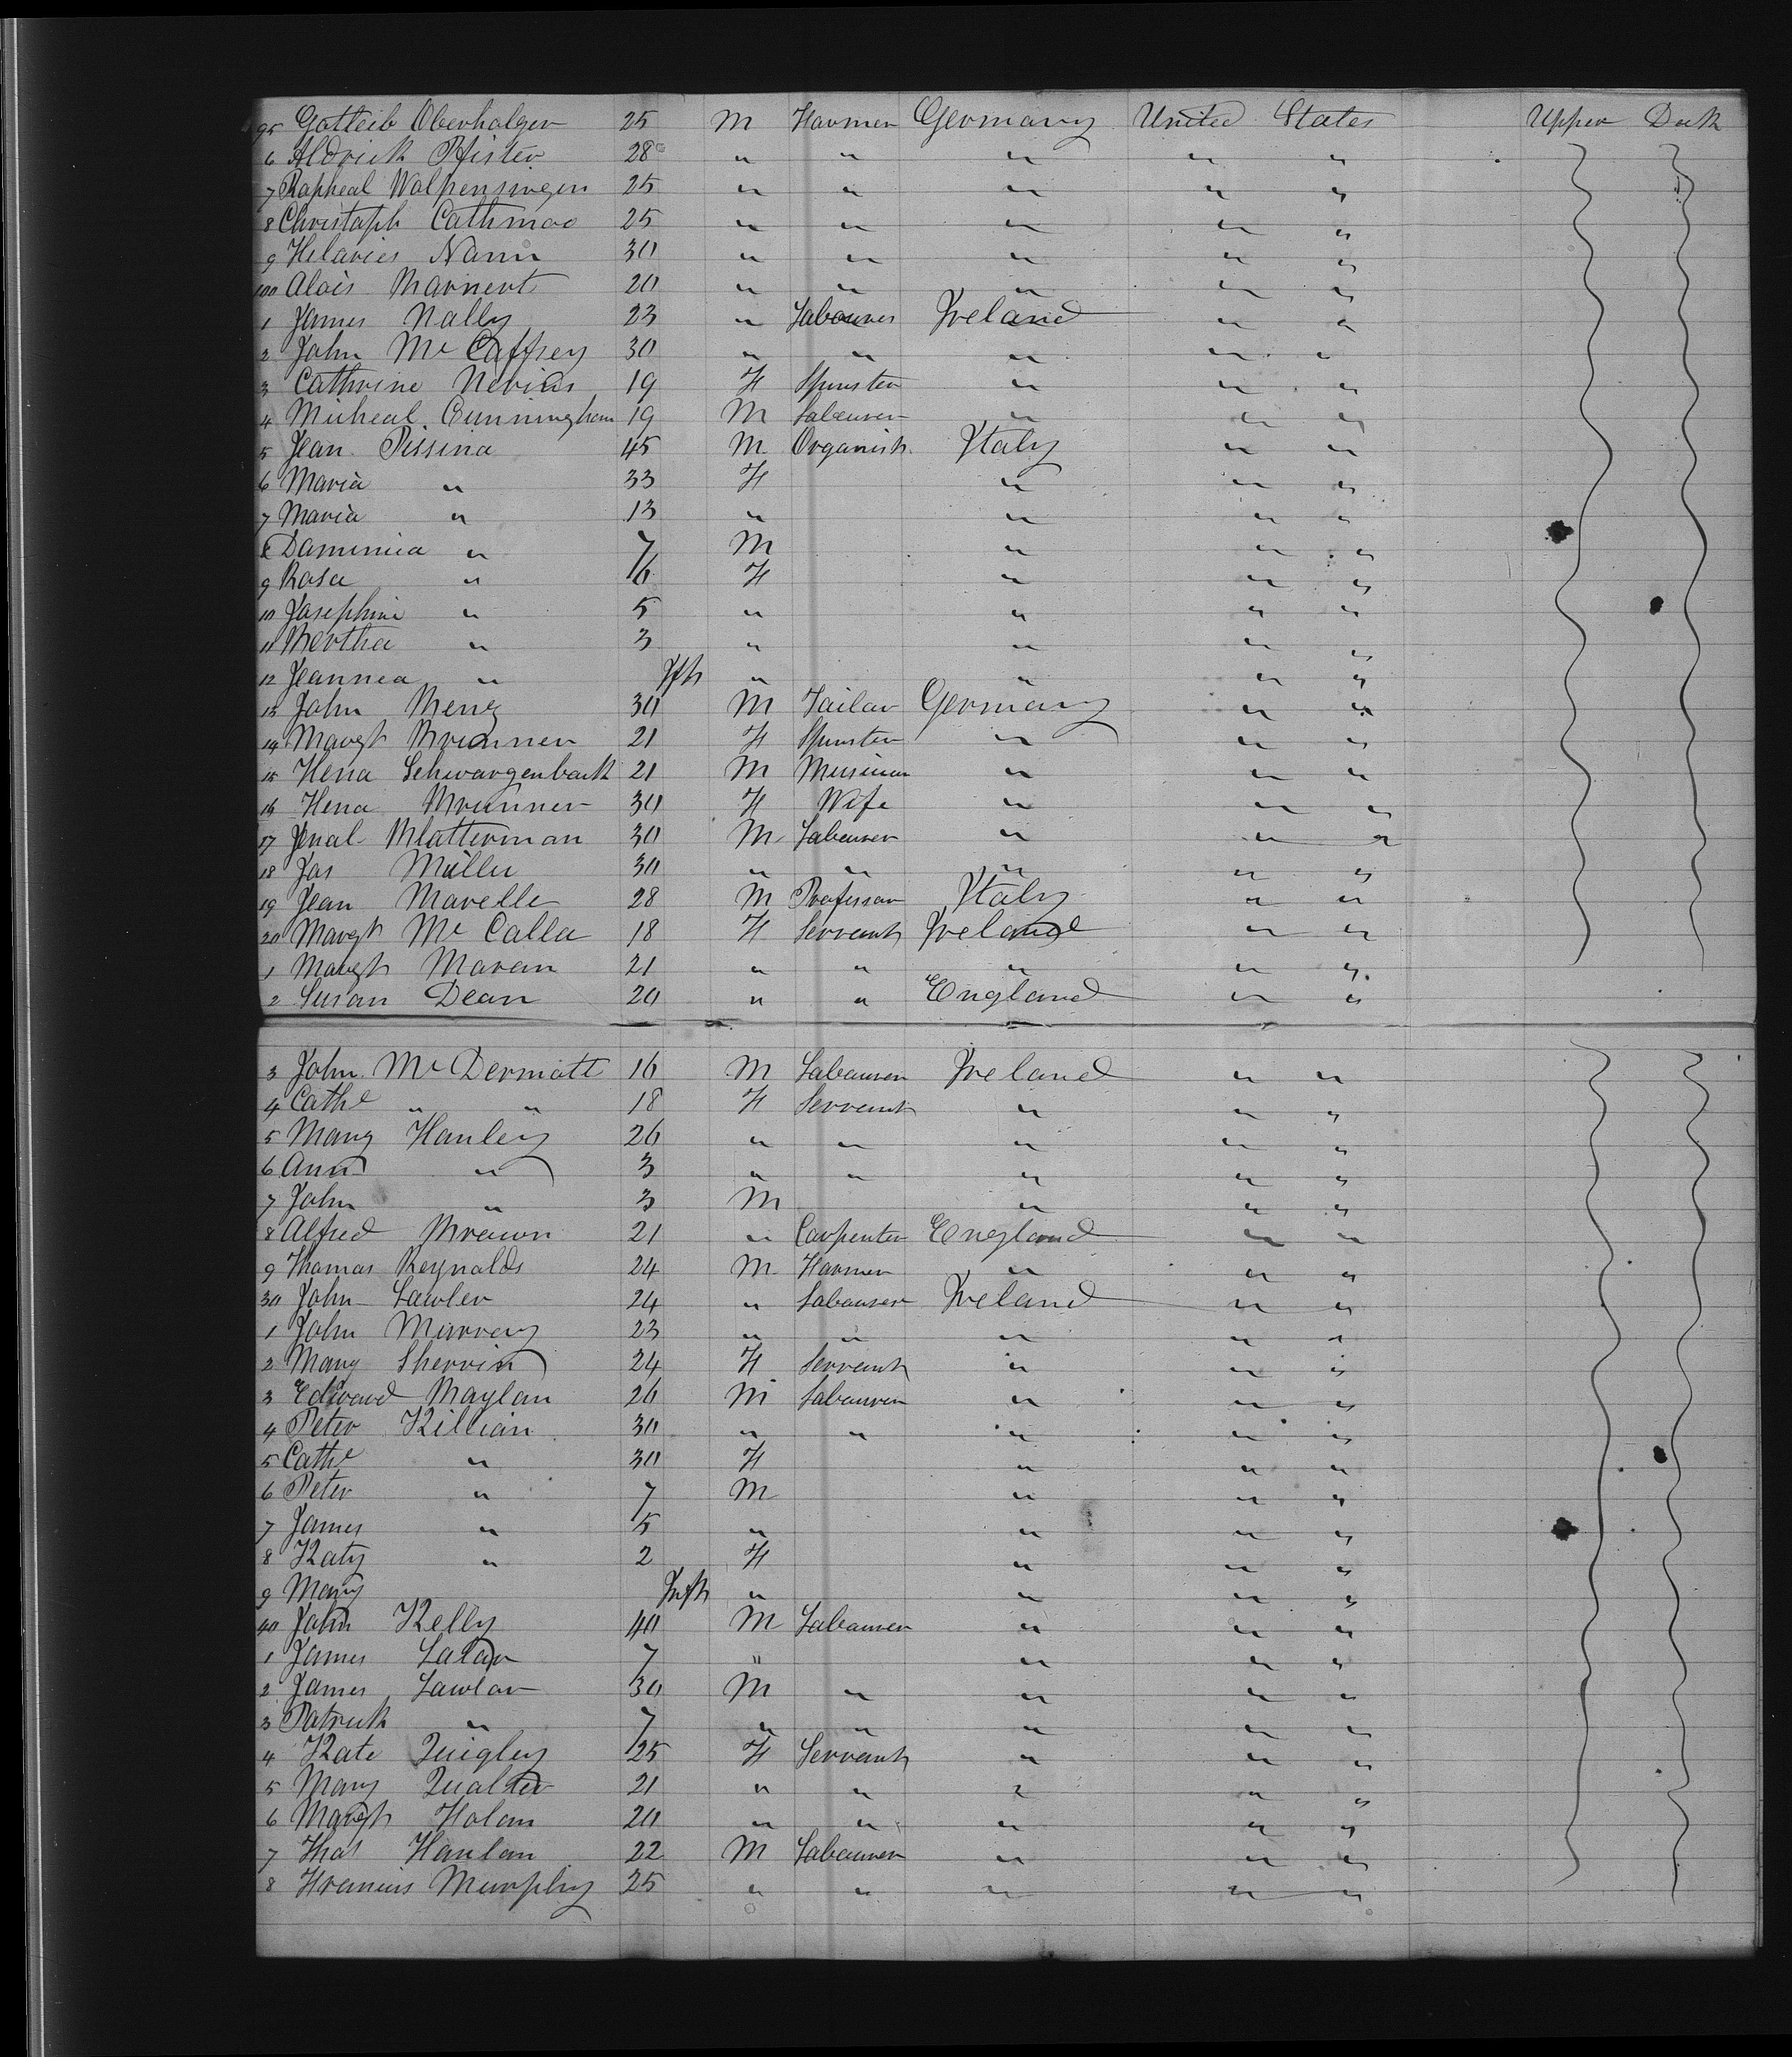 95 Gotteib Oberholzer 25 M Farmer Germany United States Upper Deck
6 Aldrick Pfister 28 " " " " "
7 Rapheal Walpensingen 25 " " " " "
8 Christoph Cathmao 25 " " " " "
9 Helaries Nann 30 " " " " "
100 Alois Marnent 20 " " " " "
1 James Nally 23 " Labourer Ireland " "
2 John Mc Caffrey 30 " " " " "
3 Cathrine Nevins 19 F Spinster " " "
4 Micheal Cunningham 19 M Labourer " " "
5 Jean Pissina 45 M Organist Italy " "
6 Maria " 33 F " " "
7 Maria " 13 " " " "
8 Daminica " 7 M " " "
9 Rosa " 6 F " " "
10 Josephine " 5 " " " "
11 Bertha " 3 " " " "
12 Jeannea " Inft " " " "
13 John Meng 30 M Tailor Germany " "
14 Margt Brunner 21 F Spinster " " "
15 Hena Schwargenback 21 M Musician " " "
16 Hena Brunner 30 F Wife " " "
17 Blatterman 30 M Labourer " " "
18 Jos Müller 30 " " " " "
19 Jean Marelle 28 M Professor Italy " "
20 Margt Mc Calla 18 F Servant Ireland " "
1 Margt Moran 21 " " " " "
2 Susan Dean 20 " " England " "
3 John Mc Dermott 16 M Labourer Ireland " "
4 Cathe " " 18 F Servant " " "
5 Mary Hanley 26 " " " " "
6 Ann " 3 " " " " "
7 John " 3 M " " "
8 Alfred Brown 21 " Carpenter England " "
9 Thomas Reynolds 24 M Farmer " " "
30 John Lawler 24 " Labourer Ireland " "
1 John Murray 23 " " " " "
2 Mary Shervin 24 F Servant " " "
3 Edward Maylan 26 M Labourer " " "
4 Peter Killian 30 " " " " "
5 Cathe " 30 F " " "
6 Peter " 7 M " " "
7 James " 5 " " " "
8 Katy " 2 F " " "
9 Mary Inft " " " "
40 John Kelly 40 M Labourer " " "
1 James 7 " " " "
2 James Lawlor 30 M " " " "
3 Patrick " 7 " " " " "
4 Kate Quigley 25 F Servant " " "
5 Mary Qualter 21 " " " " "
6 Margt Holan 20 " " " " "
7 Thos Hanlan 22 M Labourer " " "
8 Francis Murphy 25 " " " " "